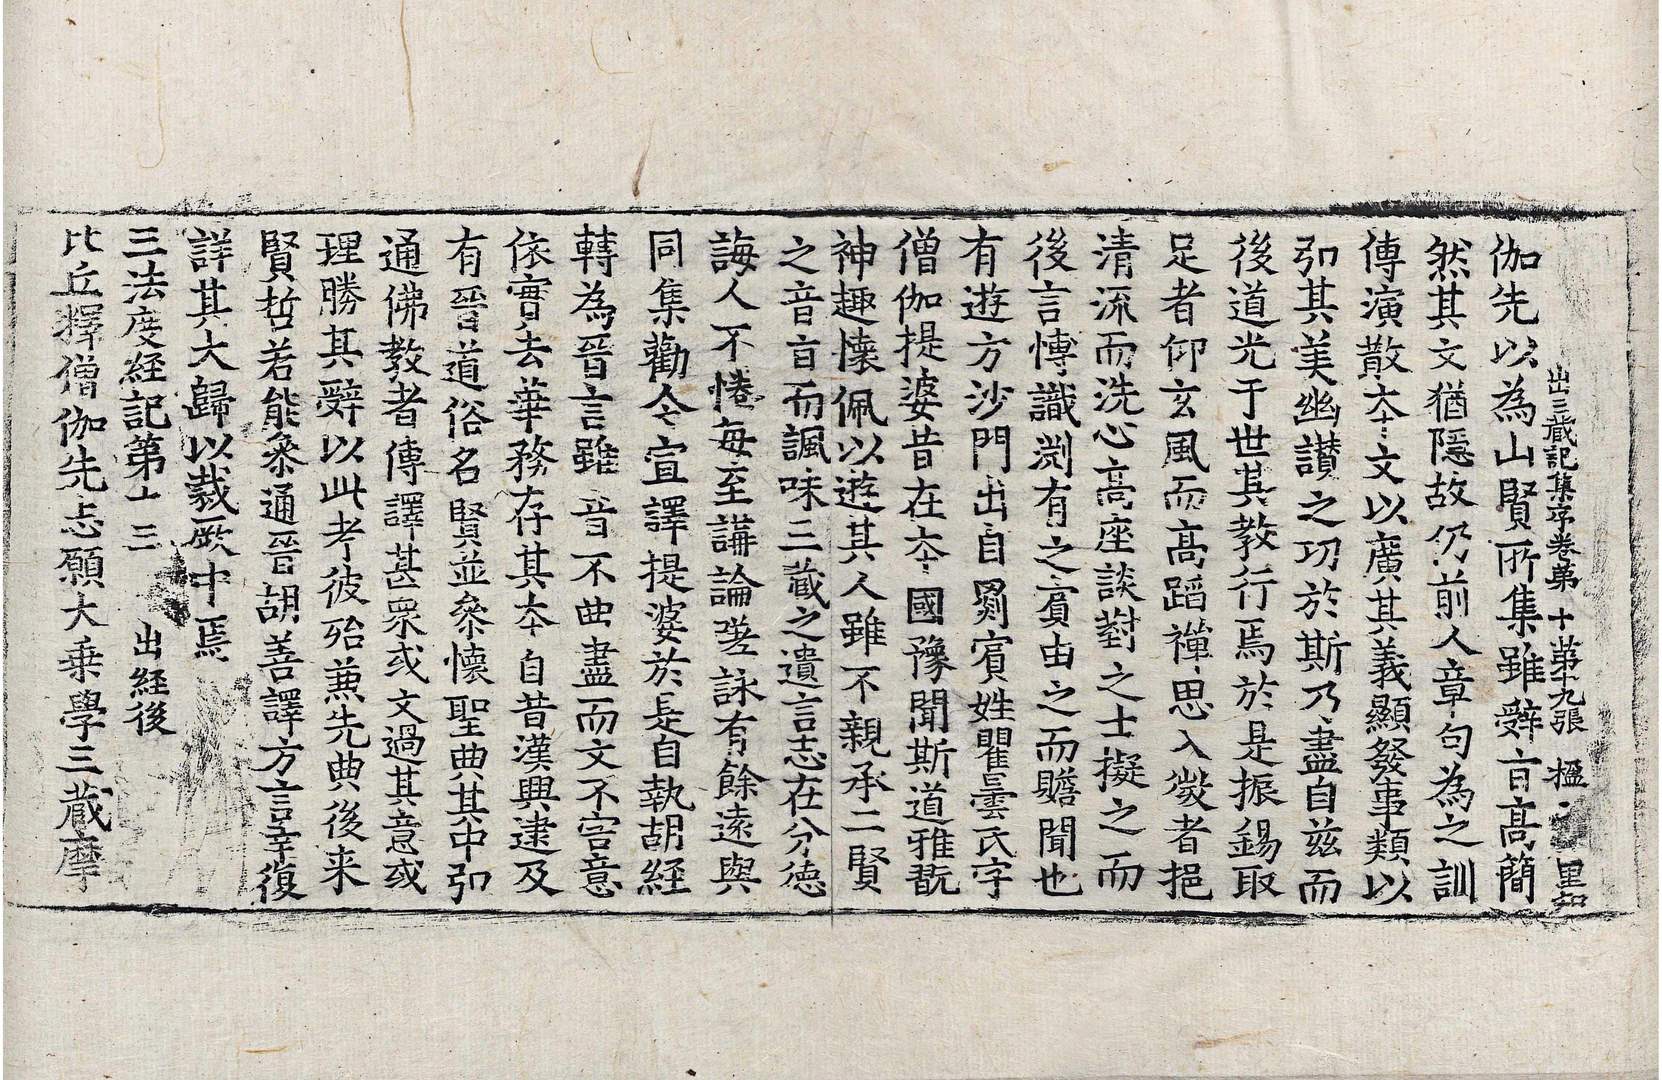 出三藏記集序卷第十 第十九張 楹
伽先以為山賢所集雖辝旨高簡
然其文猶隱故仍前人章句為之訓
傳演散夲文以廣其義顯發事類以
引其美幽讃之功於斯乃盡自兹而
後道光于世其教行焉於是振錫取
足者仰玄風而高蹈禪思入微者挹
清流而洗心高座談對之士擬之而
後言慱識渕有之賔由之而瞻聞也
有遊方沙門出自罽賔姓瞿曇氏字
僧伽提婆昔在夲國豫聞斯道雅翫
神趣懐佩以遊其人雖不親承二賢
之音旨而諷味三藏之遺言志在分德
誨人不惓每至講論嗟詠有餘遠與
同集勸令宣譯提婆於是自執胡經
轉為晉言雖音不曲盡而文不害意
依實去華務存其夲自昔漢興逮及
有晉道俗名賢並叅懐聖典其中引
通佛教者傳譯甚衆或文過其意或
理勝其辝以此考彼殆兼先典後来
賢哲若能叅通晉胡善譯方言幸復
詳其大歸以裁厥中焉
三法度經記第十三 出經後
比丘釋僧伽先志願大乗學三藏摩